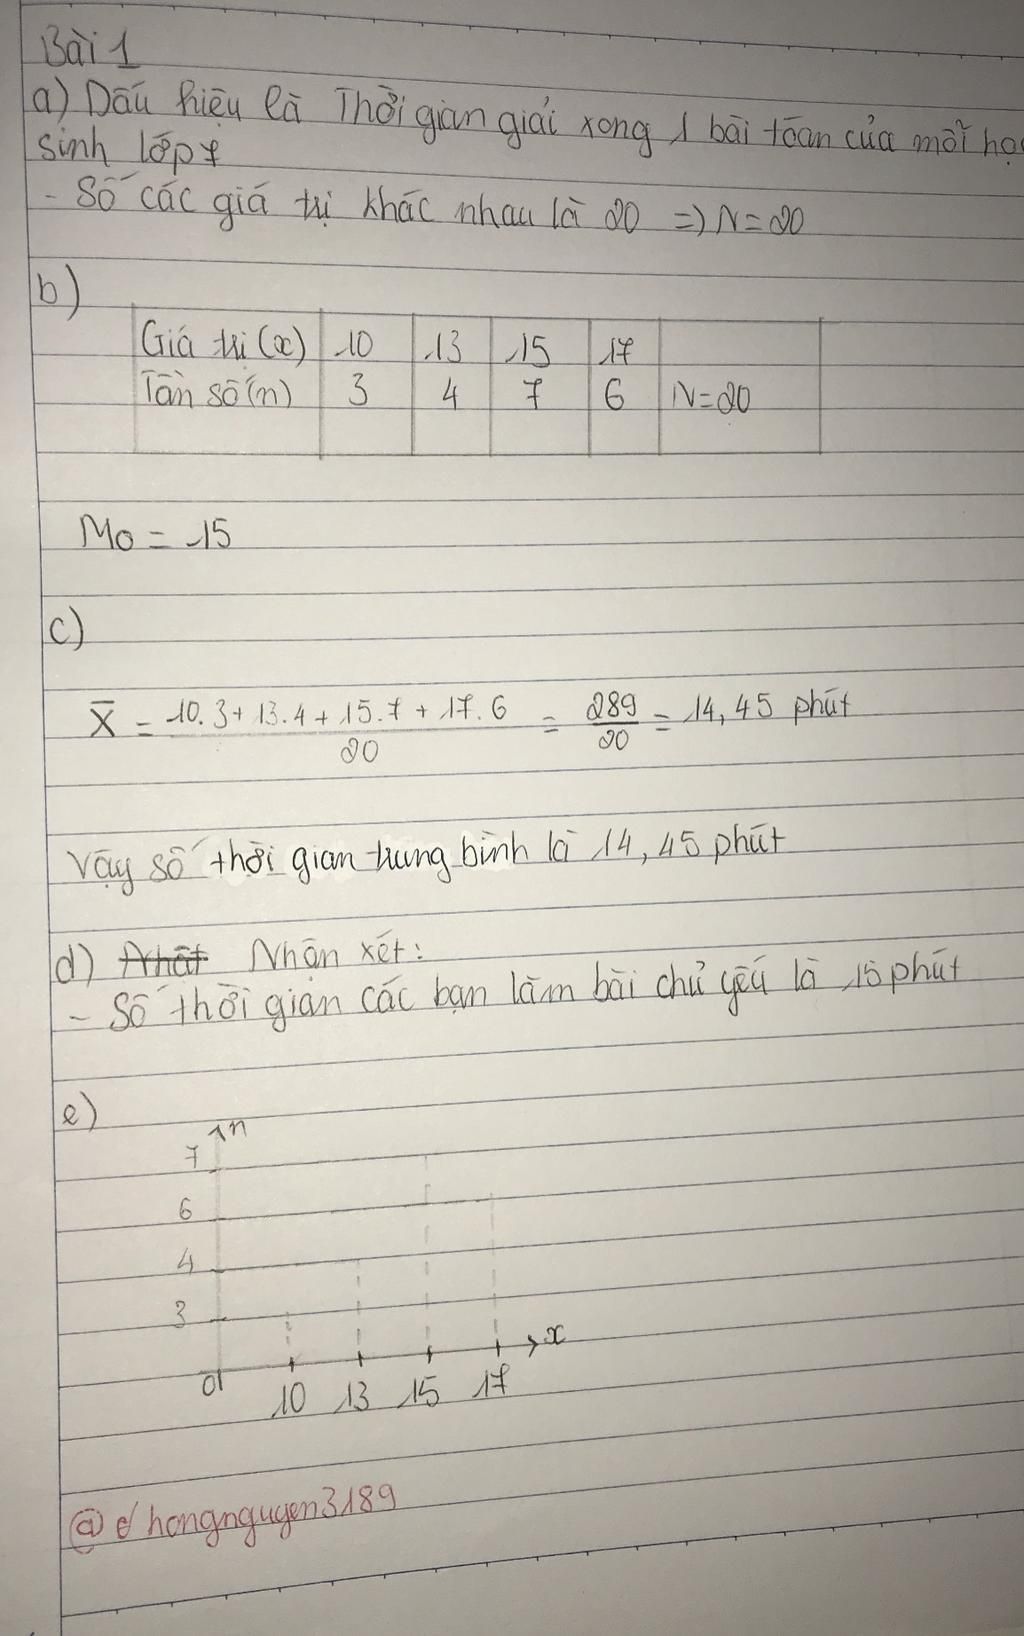 Bài 1
a) Dấu hiệu là Thời gian giải xong 1 bài toán của mỗi họ
sinh lớp 7
- Số các giá trị khác nhau là 20 => N = 20
b)
Giá trị (x) 10 13 15 17
Tần số (n) 3 4 7 6 N = 20
Mo = 15
c)
X̄ = (10.3 + 13.4 + 15.7 + 17.6)/20 = 289/20 = 14,45 phút
Vậy số thời gian trung bình là 14,45 phút
d) Nhận xét:
- Số thời gian các bạn làm bài chủ yếu là 15 phút
e)
n
7
6
4
3
0 x
10 13 15 17
@ d hongnguyen3189